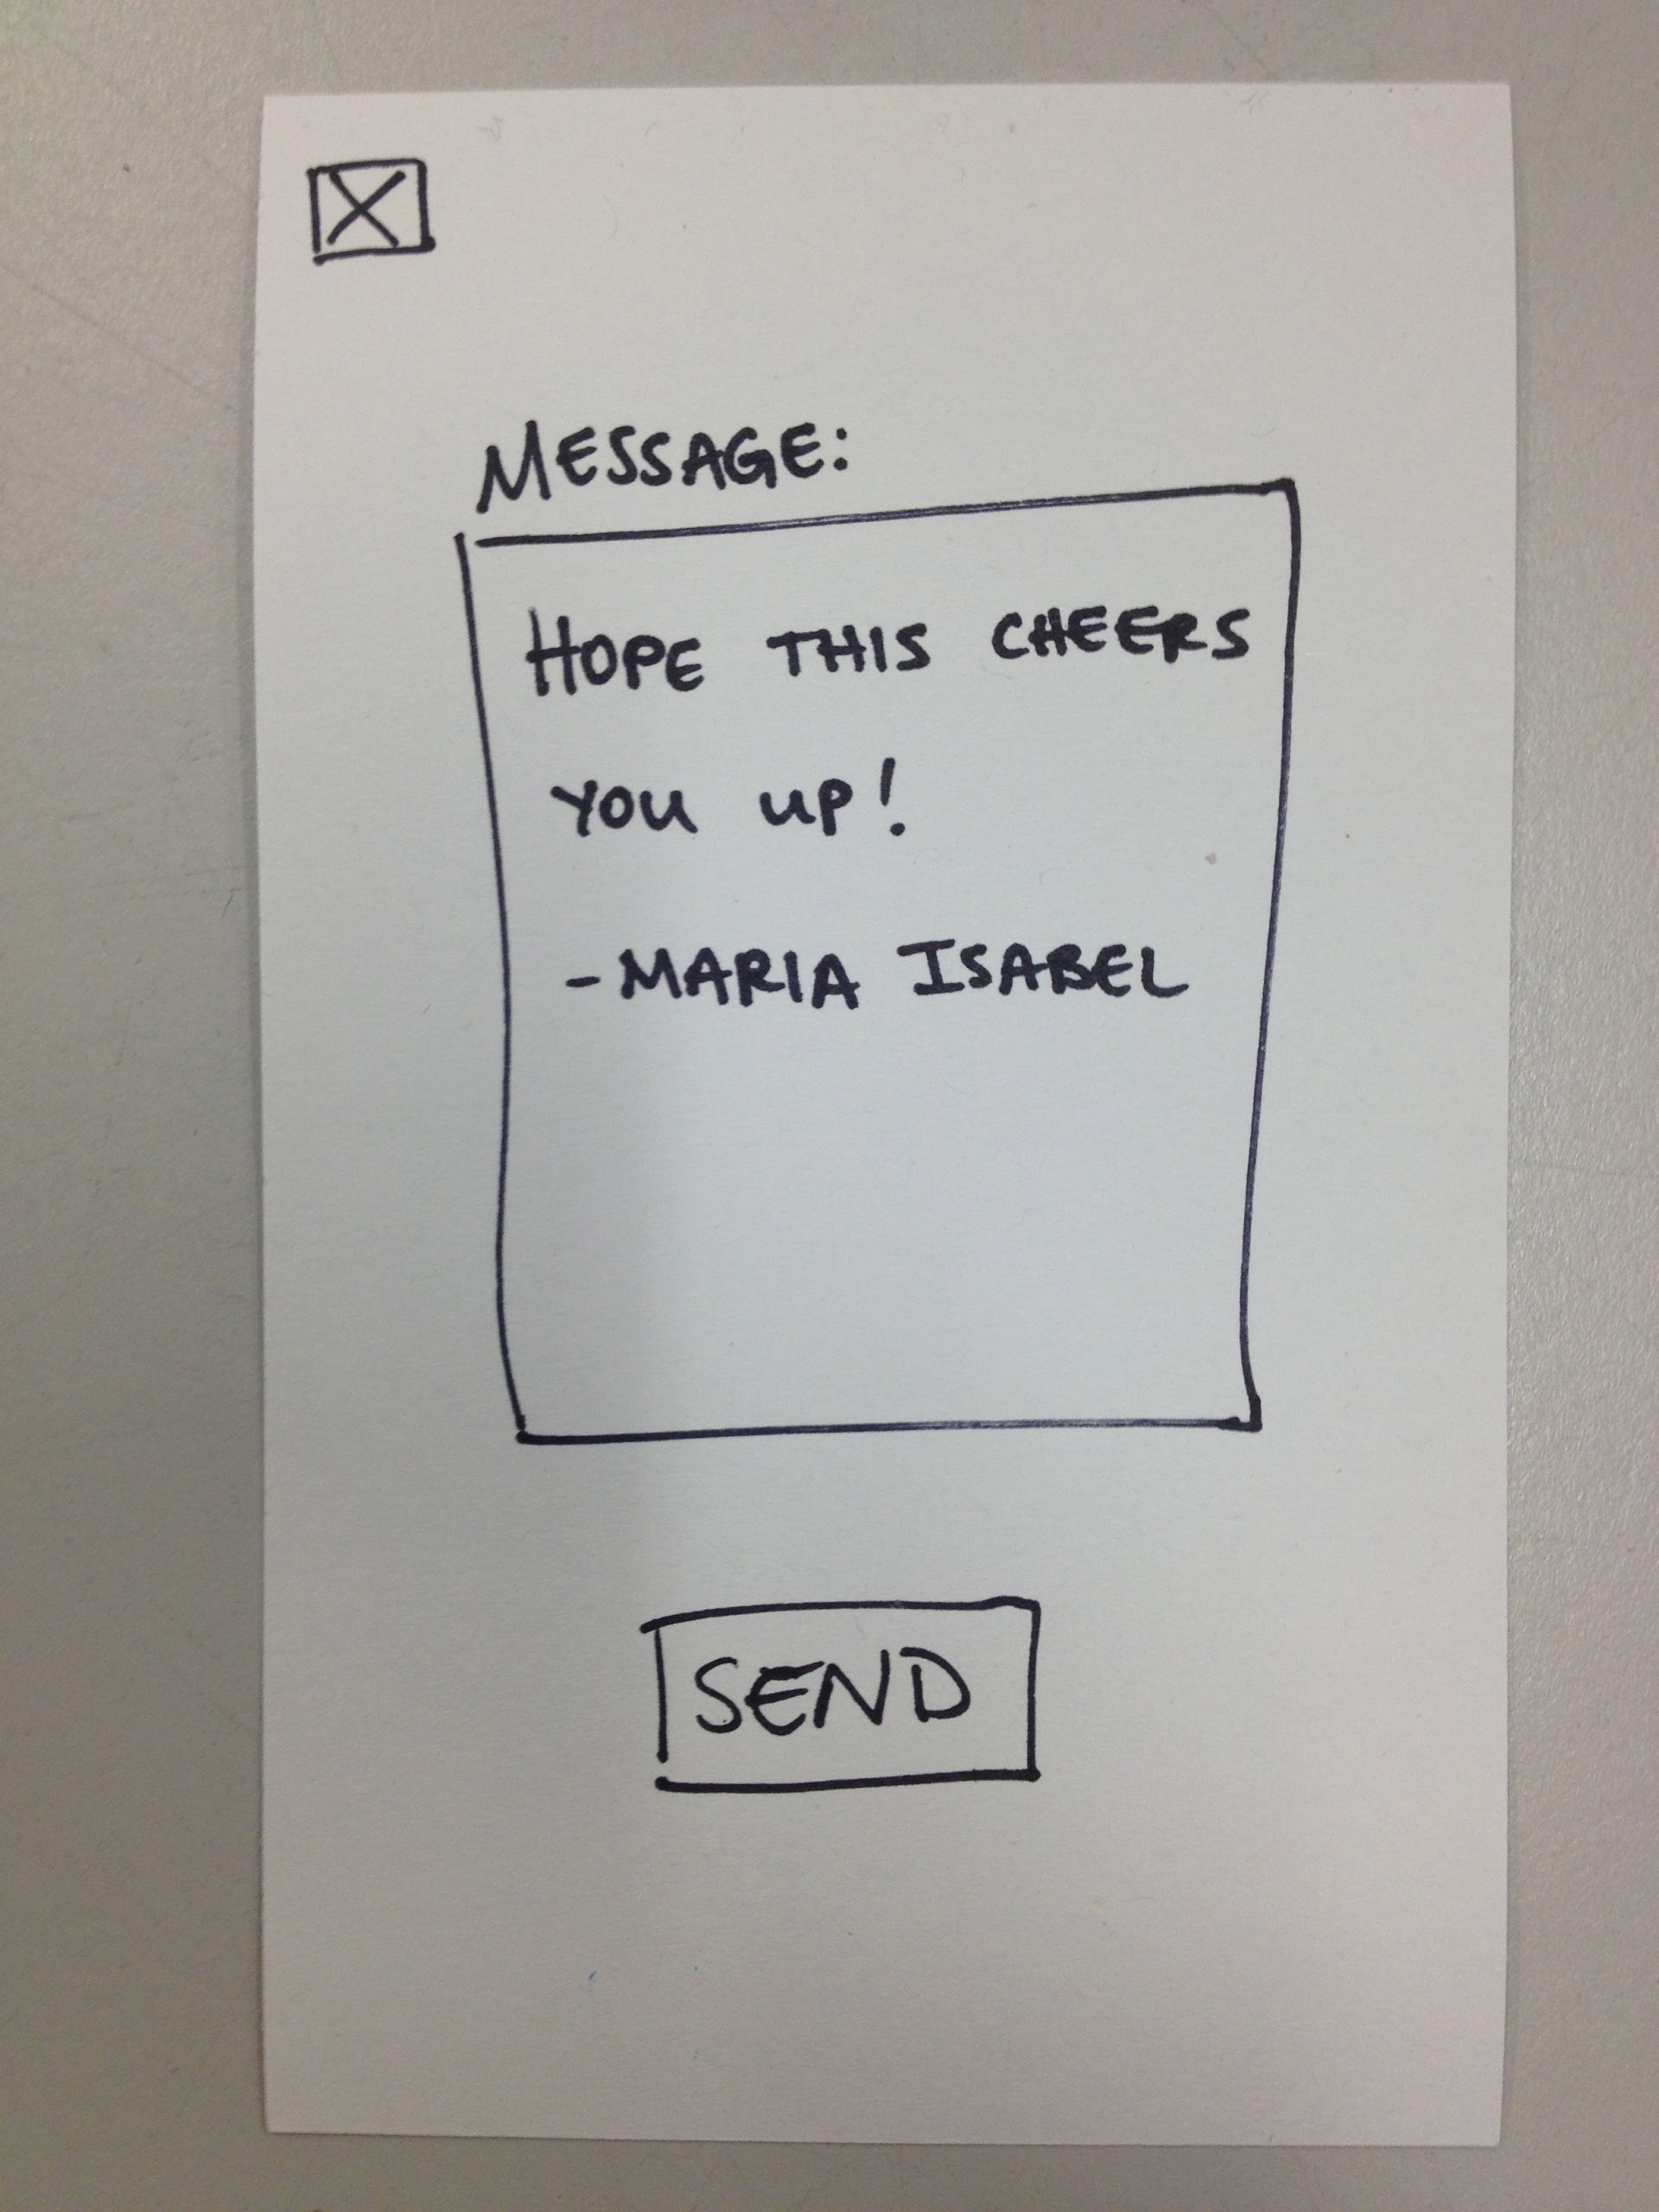 X
MESSAGE:
HOPE THIS CHEERS
YOU UP!
-MARIA ISABEL
SEND